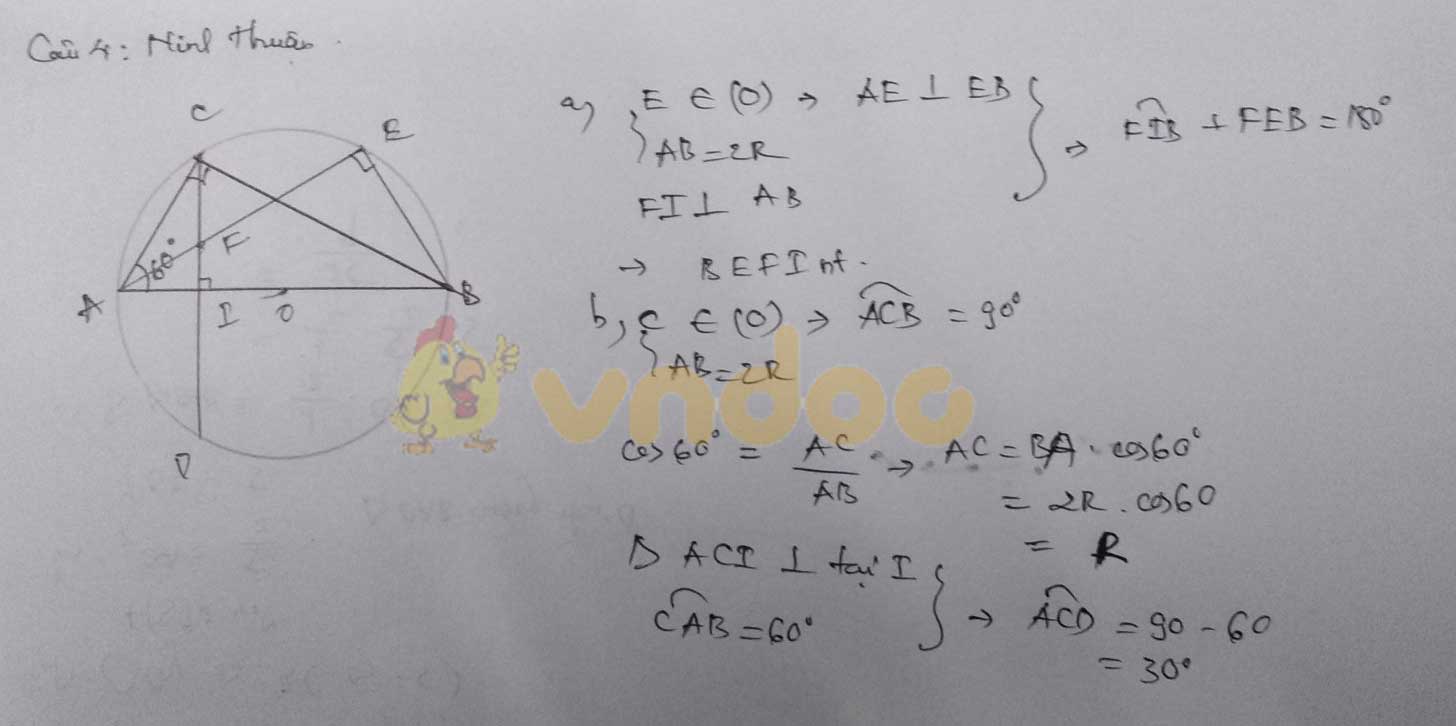 Câu 4: Ninh Thuận.
C
E
60°
F
A
I
O
B
D
a, { E ∈ (O) → AE ⊥ EB
AB = 2R
FI ⊥ AB
} → FIB + FEB = 180°
→ BEFI nt.
b, { C ∈ (O) → ACB = 90°
AB = 2R
vndoc
cos 60° = AC / AB → AC = BA . cos 60°
= 2R . cos 60
= R
Δ ACI ⊥ tại I
CAB = 60°
} → ACD = 90 - 60
= 30°